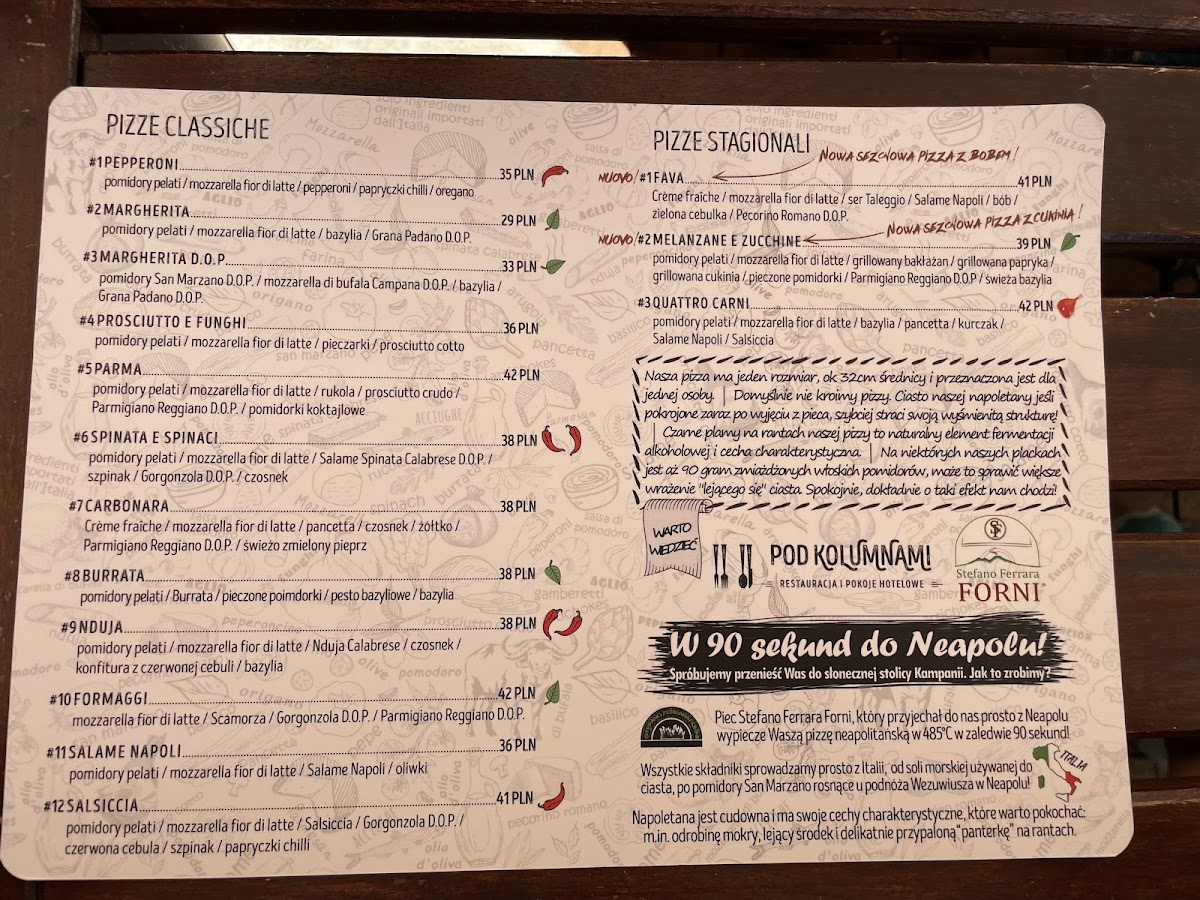 PIZZE CLASSICHE
#1 PEPPERONI 35 PLN
pomidory pelati / mozzarella fior di latte / pepperoni / papryczki chilli / oregano
#2 MARGHERITA 29 PLN
pomidory pelati / mozzarella fior di latte / bazylia / Grana Padano D.O.P.
#3 MARGHERITA D.O.P. 33 PLN
pomidory San Marzano D.O.P. / mozzarella di bufala Campana D.O.P. / bazylia /
Grana Padano D.O.P.
#4 PROSCIUTTO E FUNGHI 36 PLN
pomidory pelati / mozzarella fior di latte / pieczarki / prosciutto cotto
#5 PARMA 42 PLN
pomidory pelati / mozzarella fior di latte / rukola / prosciutto crudo /
Parmigiano Reggiano D.O.P. / pomidorki koktajlowe
#6 SPINATA E SPINACI 38 PLN
pomidory pelati / mozzarella fior di latte / Salame Spinata Calabrese D.O.P. /
szpinak / Gorgonzola D.O.P. / czosnek
#7 CARBONARA 38 PLN
Crème fraîche / mozzarella fior di latte / pancetta / czosnek / żółtko /
Parmigiano Reggiano D.O.P. / świeżo zmielony pieprz
#8 BURRATA 38 PLN
pomidory pelati / Burrata / pieczone poimdorki / pesto bazyliowe / bazylia
#9 NDUJA 38 PLN
pomidory pelati / mozzarella fior di latte / Nduja Calabrese / czosnek /
konfitura z czerwonej cebuli / bazylia
#10 FORMAGGI 42 PLN
mozzarella fior di latte / Scamorza / Gorgonzola D.O.P. / Parmigiano Reggiano D.O.P.
#11 SALAME NAPOLI 36 PLN
pomidory pelati / mozzarella fior di latte / Salame Napoli / oliwki
#12 SALSICCIA 41 PLN
pomidory pelati / mozzarella fior di latte / Salsiccia / Gorgonzola D.O.P. /
czerwona cebula / szpinak / papryczki chilli
PIZZE STAGIONALI
NOWA SEZONOWA PIZZA Z BOBEM!
NUOVO! #1 FAVA 41 PLN
Crème fraîche / mozzarella fior di latte / ser Taleggio / Salame Napoli / bób /
zielona cebulka / Pecorino Romano D.O.P.
NOWA SEZONOWA PIZZA Z CUKINIĄ!
NUOVO! #2 MELANZANE E ZUCCHINE 39 PLN
pomidory pelati / mozzarella fior di latte / grillowany bakłażan / grillowana papryka /
grillowana cukinia / pieczone pomidorki / Parmigiano Reggiano D.O.P / świeża bazylia
#3 QUATTRO CARNI 42 PLN
pomidory pelati / mozzarella fior di latte / bazylia / pancetta / kurczak /
Salame Napoli / Salsiccia
Nasza pizza ma jeden rozmiar, ok 32cm średnicy i przeznaczona jest dla
jednej osoby. | Domyślnie nie kroimy pizzy. Ciasto naszej napoletany jeśli
pokrojone zaraz po wyjęciu z pieca, szybciej straci swoją wyśmienitą strukturę!
| Czarne plamy na rantach naszej pizzy to naturalny element fermentacji
alkoholowej i cecha charakterystyczna. | Na niektórych naszych plackach
jest aż 90 gram zmiażdżonych włoskich pomidorów, może to sprawić większe
wrażenie "lejącego się" ciasta. Spokojnie, dokładnie o taki efekt nam chodzi!
WARTO
WIEDZIEĆ
POD KOLUMNAMI
RESTAURACJA I POKOJE HOTELOWE
Stefano Ferrara
FORNI
W 90 sekund do Neapolu!
Spróbujemy przenieść Was do słonecznej stolicy Kampanii. Jak to zrobimy?
Piec Stefano Ferrara Forni, który przyjechał do nas prosto z Neapolu
wypiecze Waszą pizzę neapolitańską w 485°C w zaledwie 90 sekund!
Wszystkie składniki sprowadzamy prosto z Italii, od soli morskiej używanej do
ciasta, po pomidory San Marzano rosnące u podnóża Wezuwiusza w Neapolu!
ITALIA
Napoletana jest cudowna i ma swoje cechy charakterystyczne, które warto pokochać:
m.in. odrobinę mokry, lejący środek i delikatnie przypaloną "panterkę" na rantach.